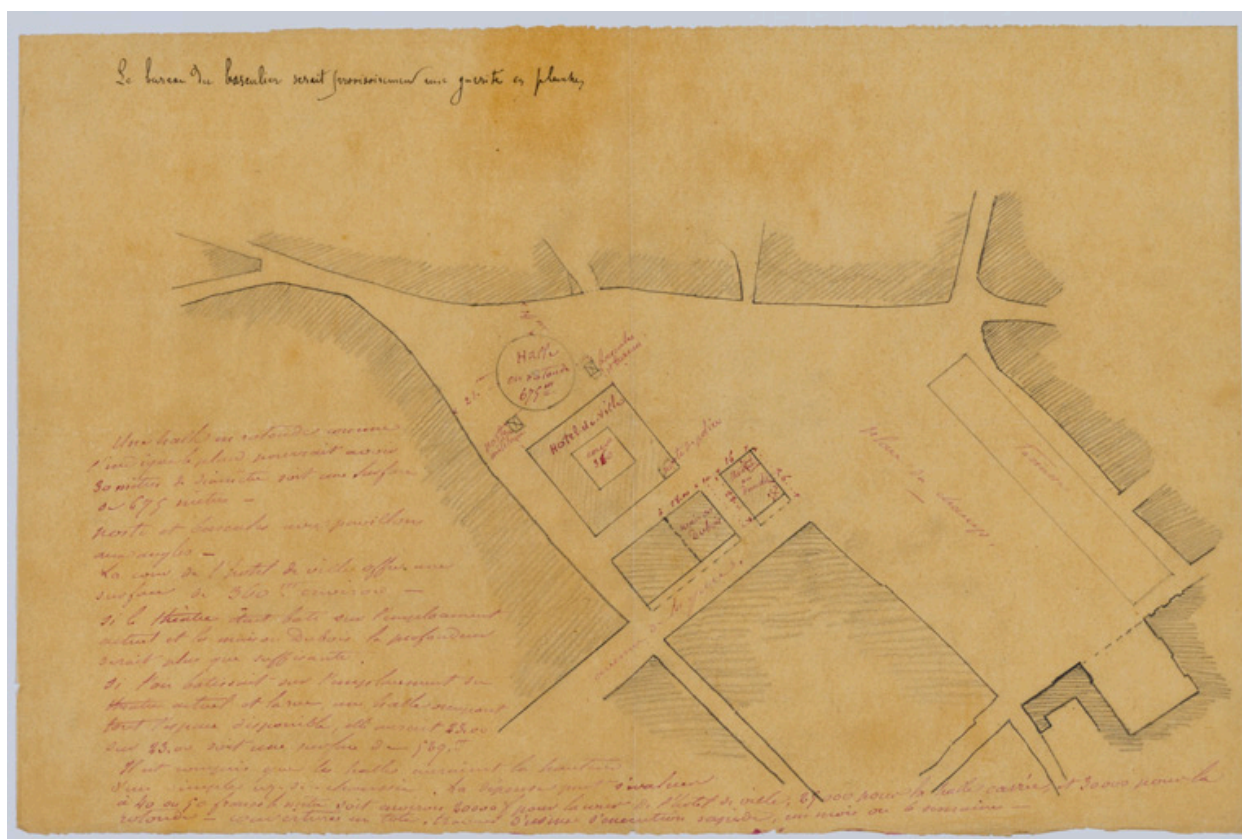 Le bureau du basculier serait provisoirement une guérite en planches
Halle
en rotonde
675
21
Hotel de Ville
cour
360
Poste de police
16
Place du champ
Une halle en rotonde comme
l'indique le plan pourrait avoir
30 mètres de diamètre soit une surface
de 675 metres —
poste et bascule avec pavillons
aux angles —
La cour de l'hotel de ville offre une
surface de 360 environ —
Si le théâtre était bati sur l'emplacement
actuel et la maison Dubois la profondeur
serait plus que suffisante.
Si l'on batissait sur l'emplacement du
théatre actuel et la rue, une halle occupant
tout l'espace disponible, elle aurait 23.00
sur 23.00 soit une surface de 529
Il est compris que les halles auraient la hauteur
d'un simple rez-de-chaussée. La dépense peut s'évaluer
à 40 ou 50 francs le mètre soit environ pour la cour de l'hotel de ville, pour la halle carrée, et 30000 pour la
rotonde — couvertures en tole, travaux d'exécution rapide, un mois ou 6 semaines —